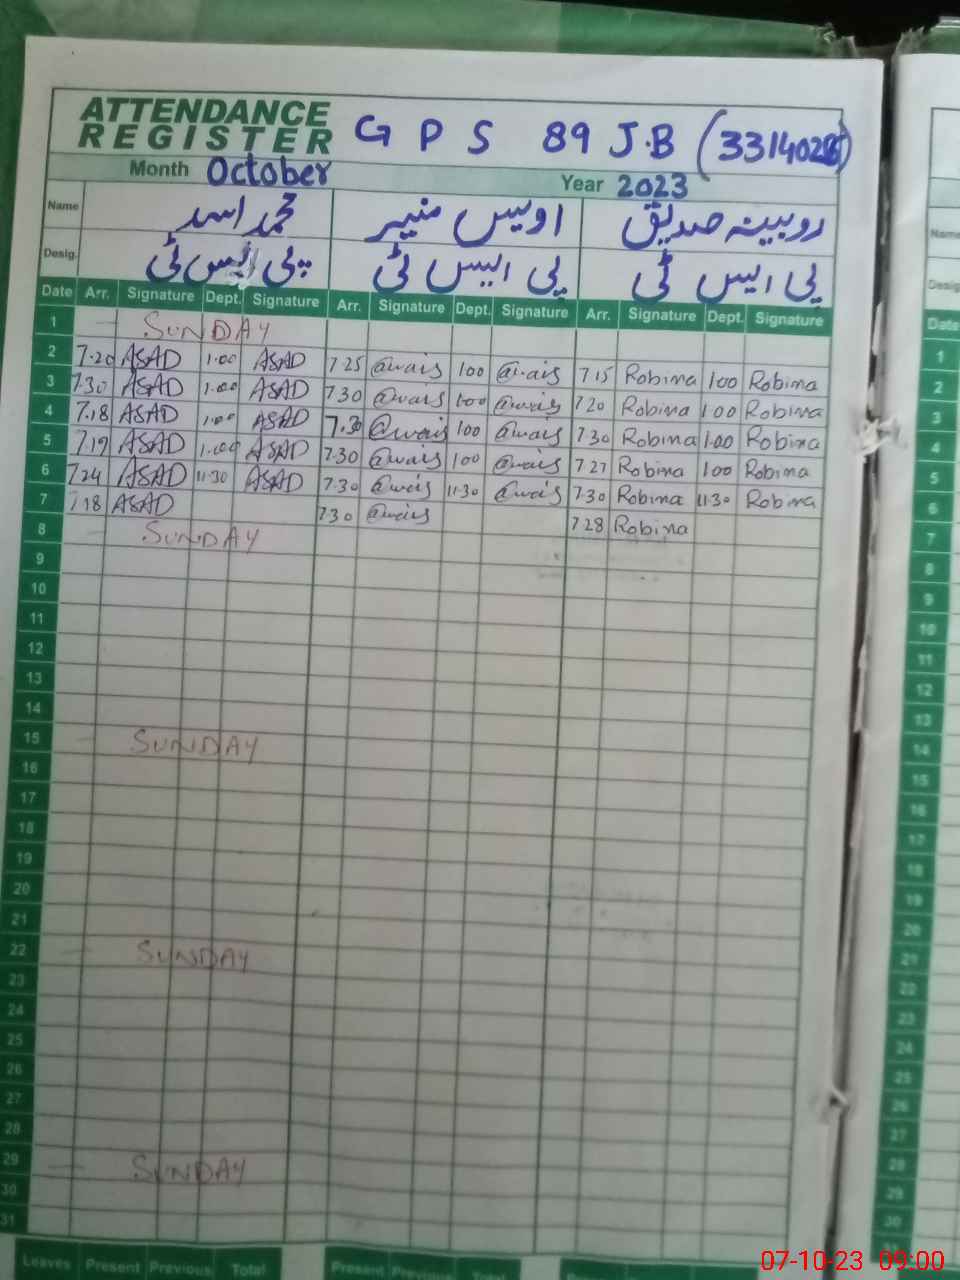 ATTENDANCE
REGISTER
G P S 89 J.B (33140285)
Month October
Year 2023
Name محمد اسد اویس منیر روبینہ صدیق
Desig. پی ایس ٹی پی ایس ٹی پی ایس ٹی
Date Arr. Signature Dept. Signature Arr. Signature Dept. Signature Arr. Signature Dept. Signature
1 — SUNDAY
2 7.20 ASAD 1.00 ASAD 7.25 @wais 1.00 @wais 7.15 Robina 1.00 Robina
3 7.30 ASAD 1.00 ASAD 7.30 @wais 1.00 @wais 7.20 Robina 1.00 Robina
4 7.18 ASAD 1.00 ASAD 7.30 @wais 1.00 @wais 7.30 Robina 1.00 Robina
5 7.19 ASAD 1.00 ASAD 7.30 @wais 1.00 @wais 7.27 Robina 1.00 Robina
6 7.24 ASAD 11.30 ASAD 7.30 @wais 11.30 @wais 7.30 Robina 11.30 Robina
7 7.18 ASAD 7.30 @wais 7.28 Robina
8 — SUNDAY
9
10
11
12
13
14
15 — SUNDAY
16
17
18
19
20
21
22 — SUNDAY
23
24
25
26
27
28
29 — SUNDAY
30
31
Leaves Present Previous Total Present Previous Total Present Previous Total
Name
Desig
Date
1
2
3
4
5
6
7
8
9
10
11
12
13
14
15
16
17
18
19
20
21
22
23
24
25
26
27
28
29
30
07-10-23 09:00